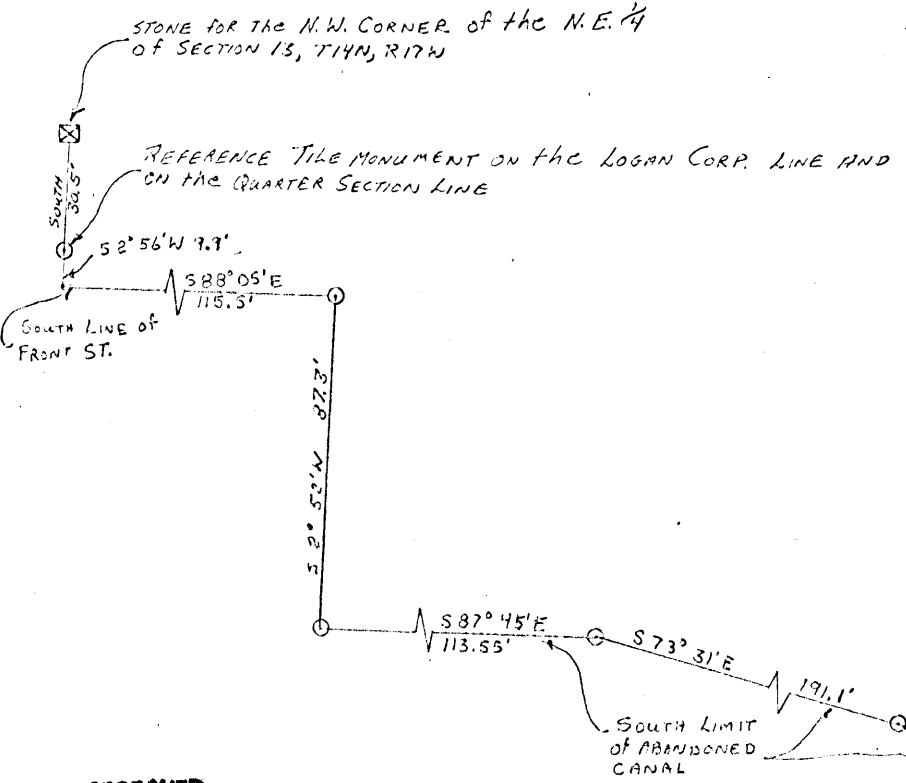 STONE for the N.W. CORNER of the N.E. 1/4
of SECTION 13, T14N, R17W
SOUTH
30.5'
REFERENCE TILE MONUMENT ON the LOGAN CORP. LINE AND
ON the QUARTER SECTION LINE
S 2° 56' W 9.9'
S 88° 05' E
115.5'
SOUTH LINE of
FRONT ST.
S 2° 52' W 87.3'
S 87° 45' E
113.55'
S 73° 31' E
191.1'
SOUTH LIMIT
of ABANDONED
CANAL